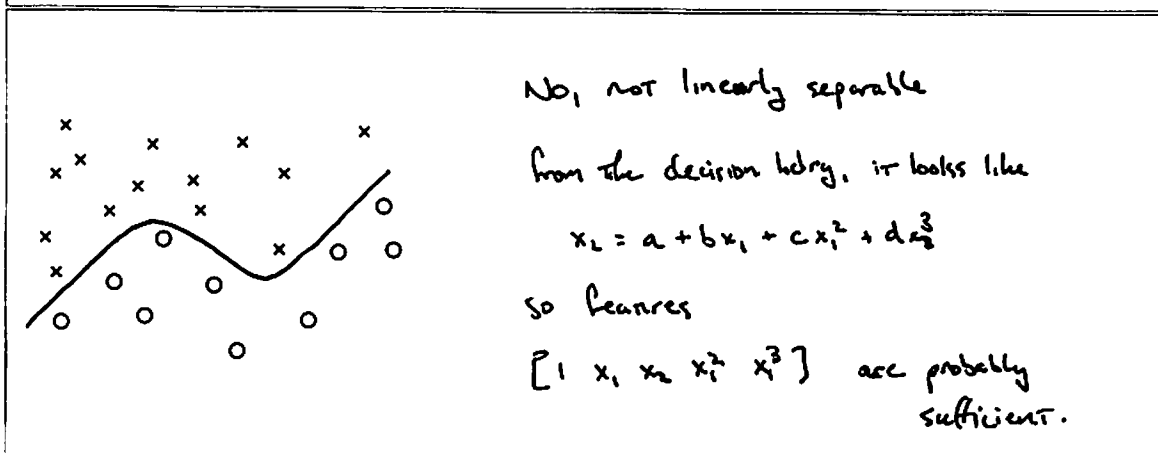 No, not linearly separable
from the decision bdry, it looks like
x₂ = a + bx₁ + cx₁² + dx₂³
so features
[1 x₁ x₂ x₁² x₁³] are probably
sufficient.